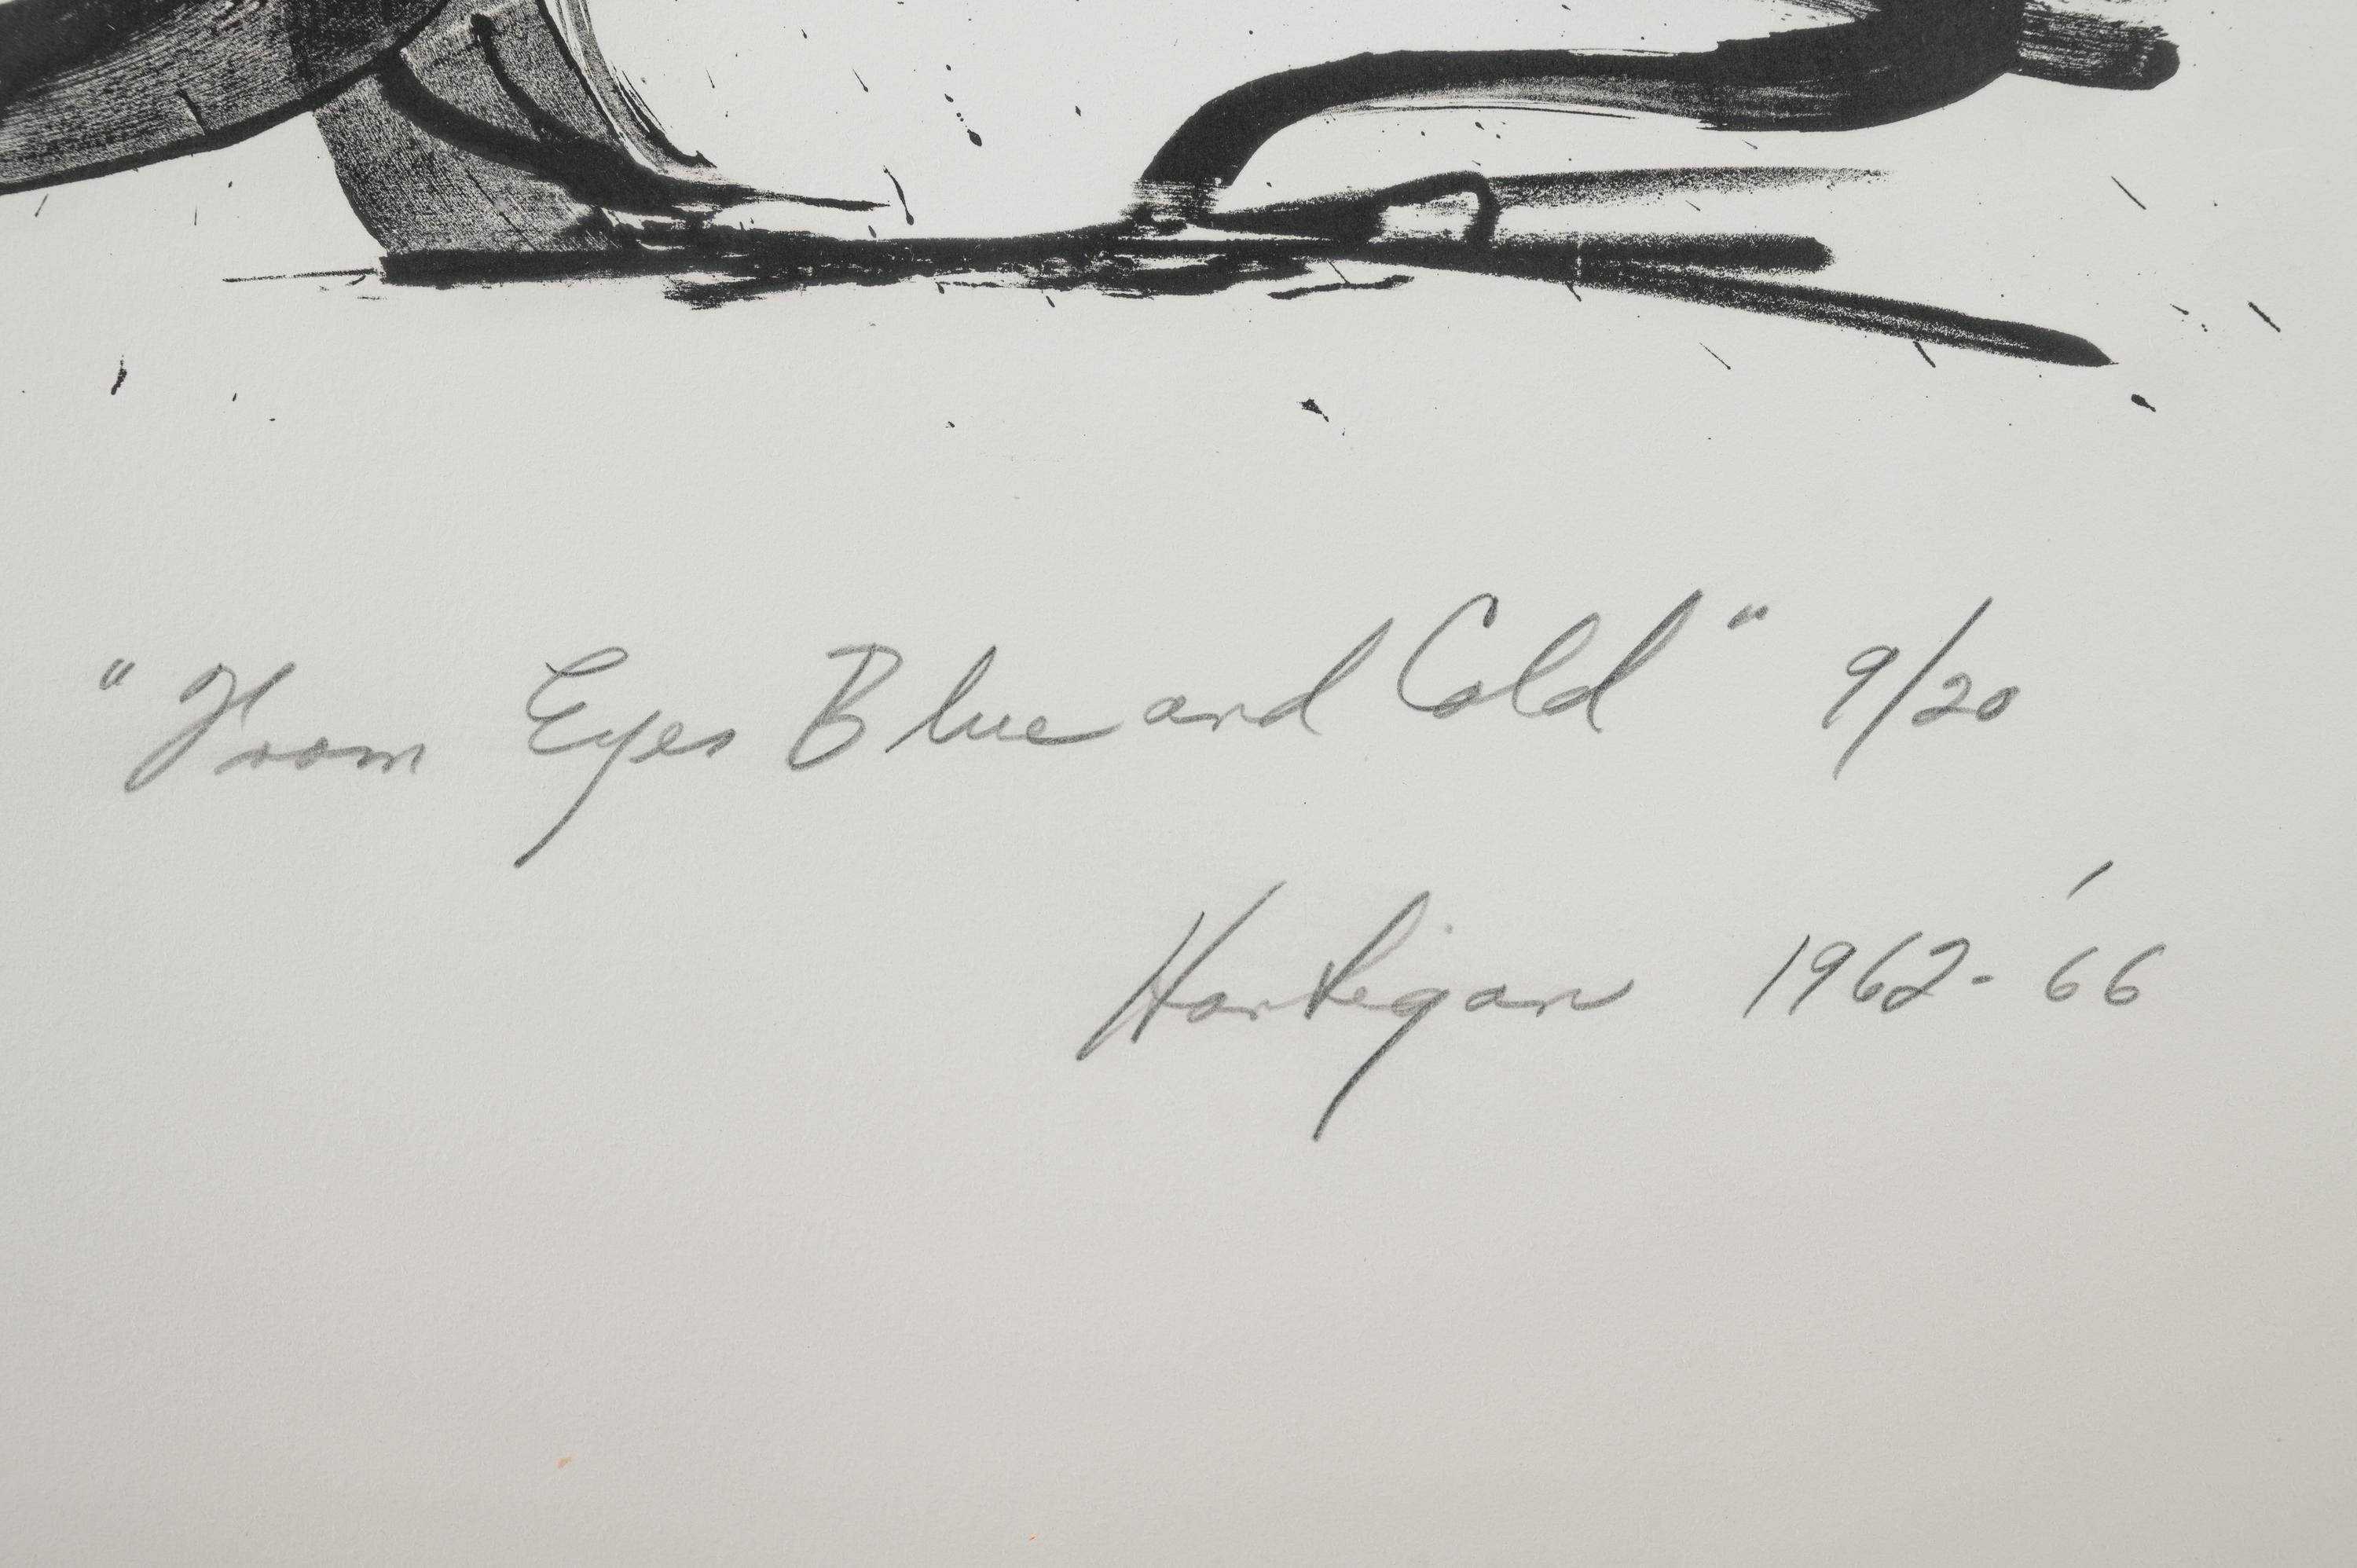 "From Eyes Blue and Cold" 9/20
Hartigan 1962-'66